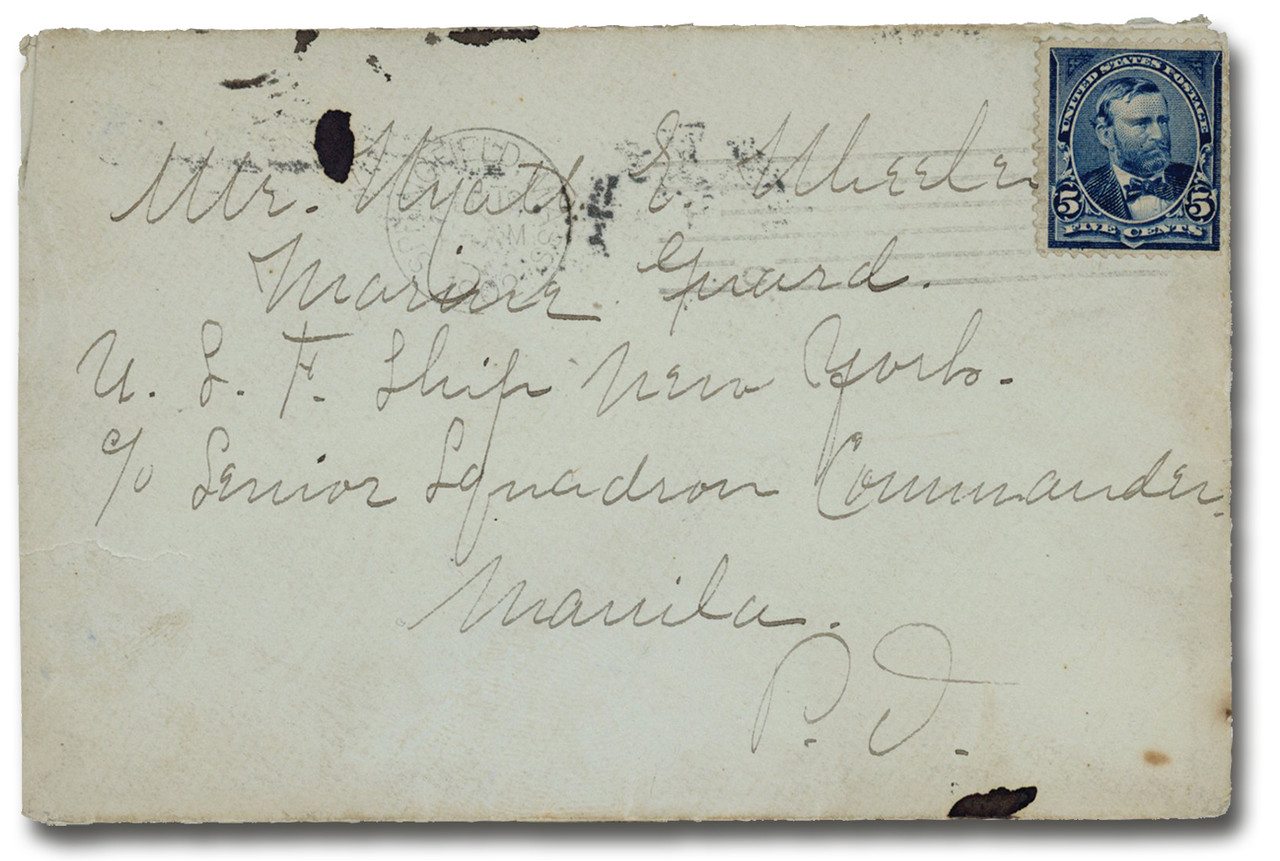 UNITED STATES POSTAGE
5 5
FIVE CENTS
FIELD
AM
Mr. Wyatt E. Wheeler
Marine Guard.
U. S. F. Ship New York.
c/o Senior Squadron Commander,
Manila.
P. I.